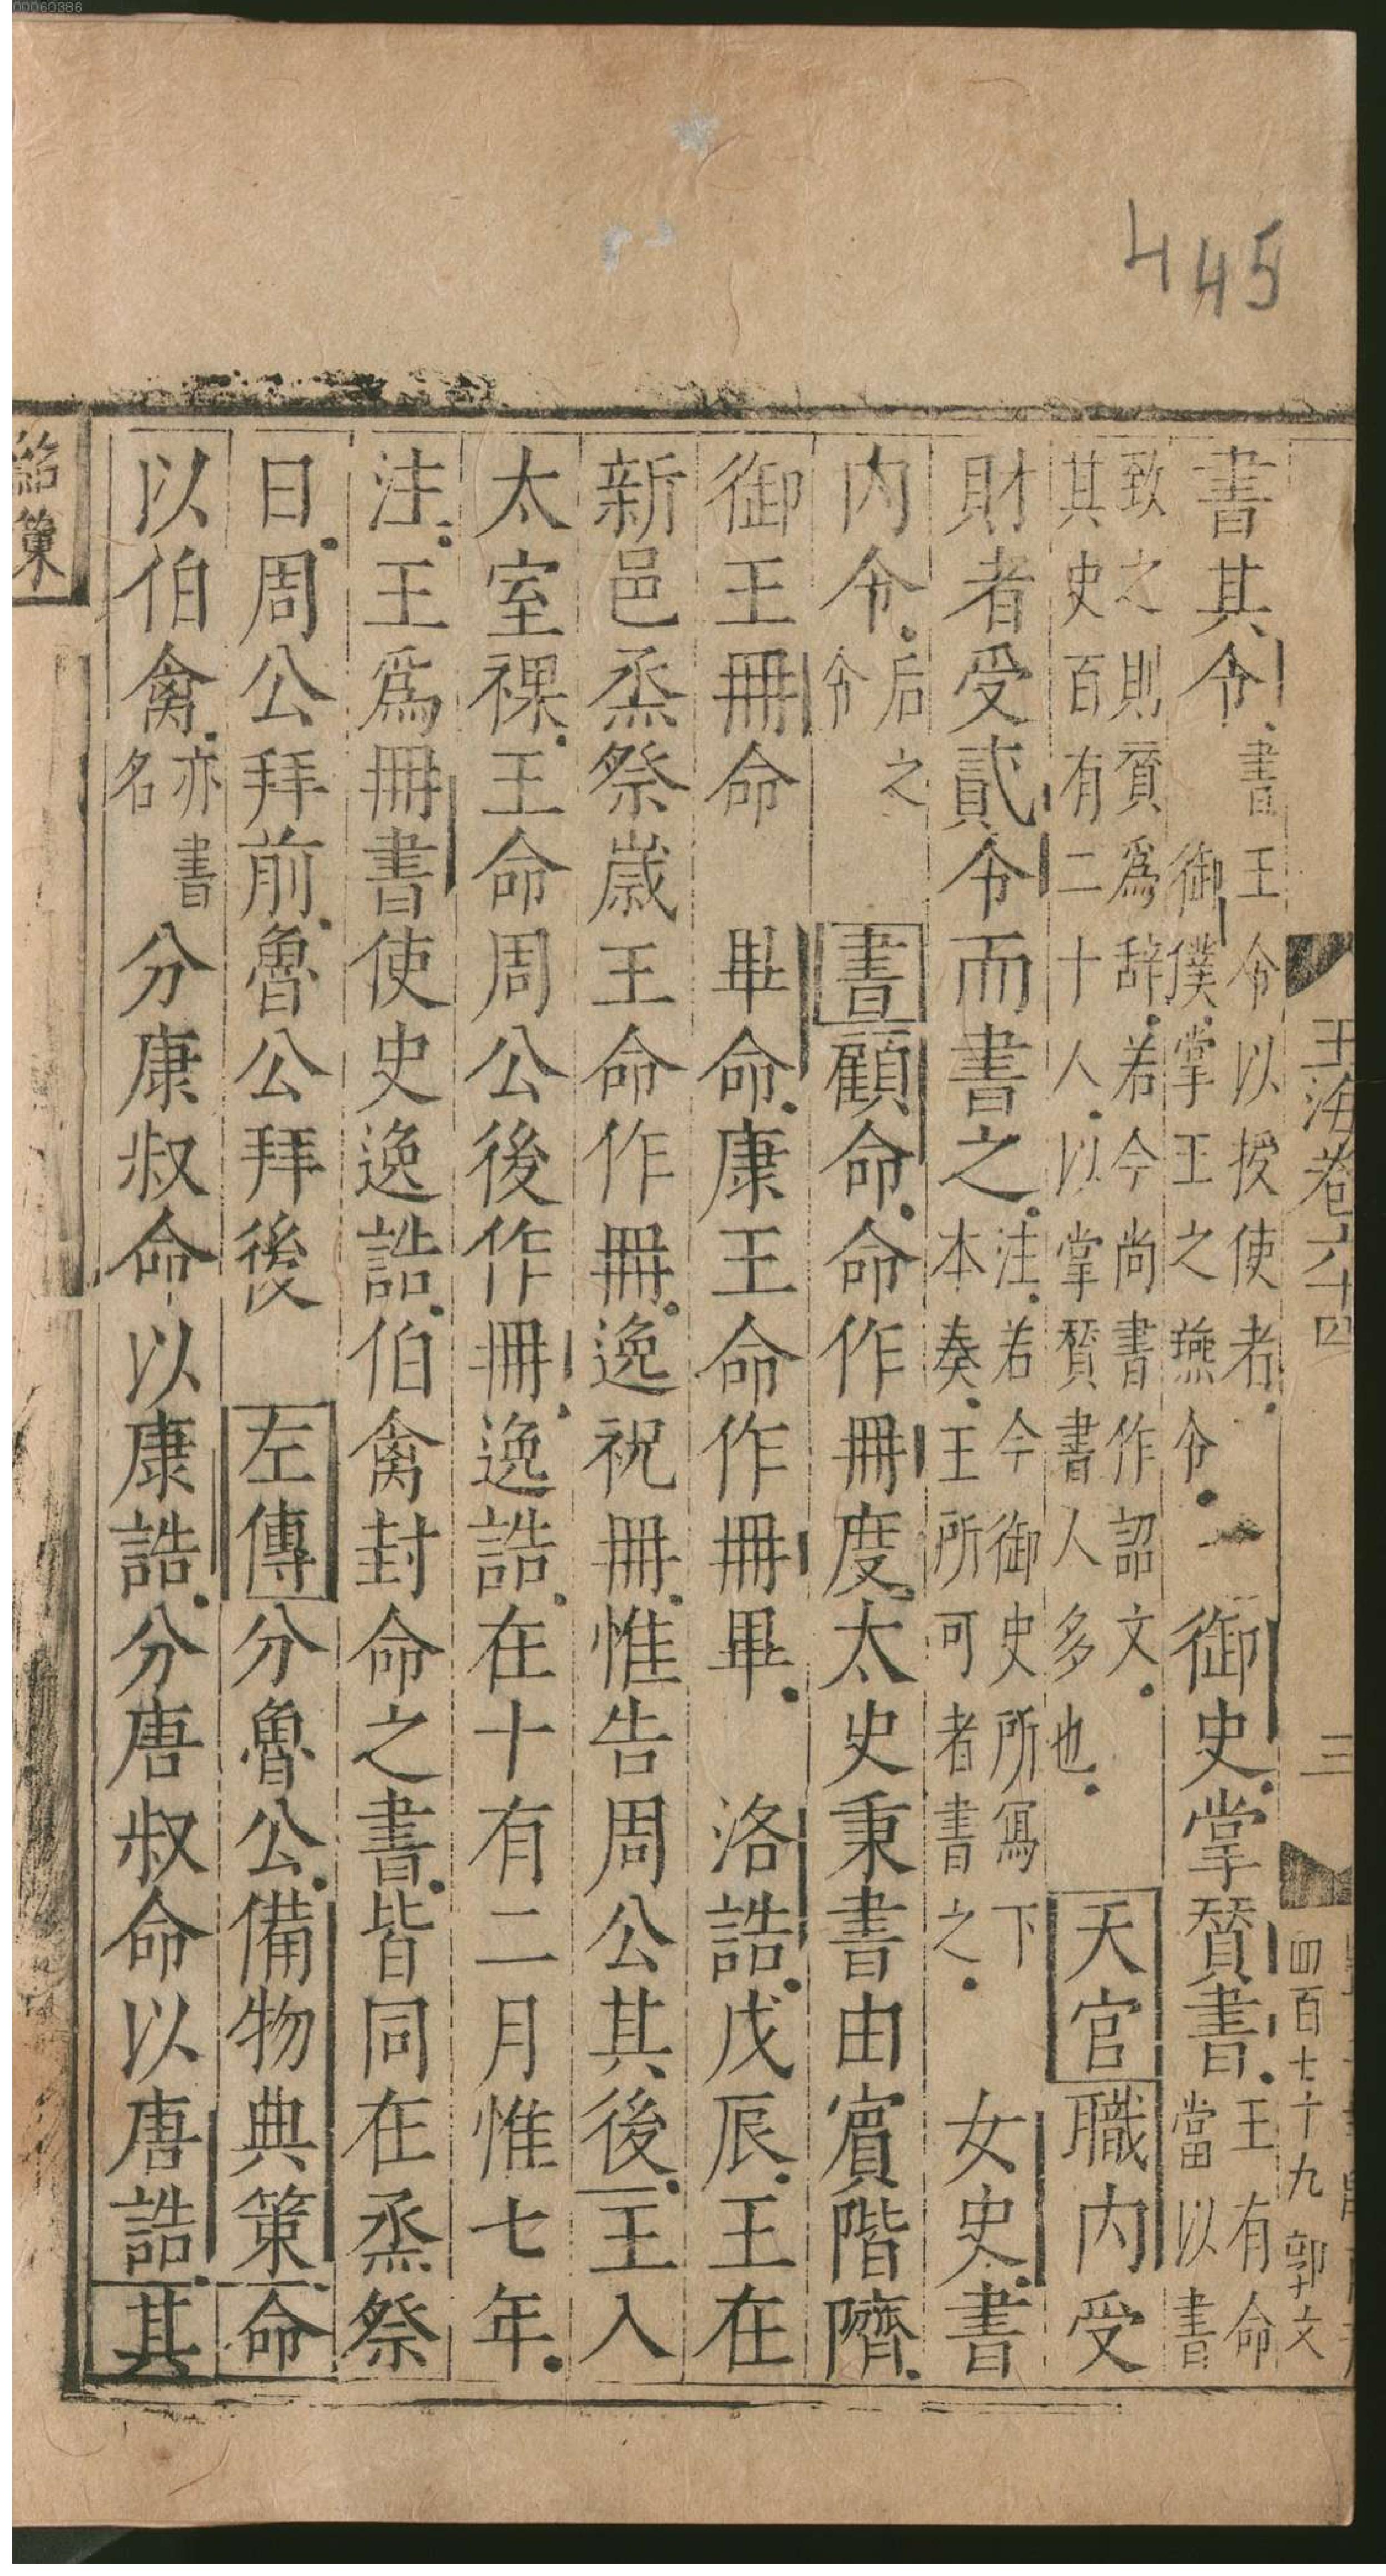 00060386
445
玉海卷六十四
三
四百七十九 郭文
書其令書王令以授使者御僕掌王之燕令御史掌賛書王有命當以書
致之則賛爲辭若今尚書作詔文其史百有二十人以掌賛書人多也天官職內受
財者受貳令而書之注若今御史所寫下本奏王所可者書之女史書
內令后之令書顧命命作冊度太史秉書由賓階隮
御王冊命畢命康王命作冊畢洛誥戊辰王在
新邑烝祭歲王命作冊逸祝冊惟告周公其後王入
太室祼王命周公後作冊逸誥在十有二月惟七年
注王爲冊書使史逸誥伯禽封命之書皆同在烝祭
日周公拜前魯公拜後左傳分魯公備物典策命
以伯禽亦書名分康叔命以康誥分唐叔命以唐誥其
詔策